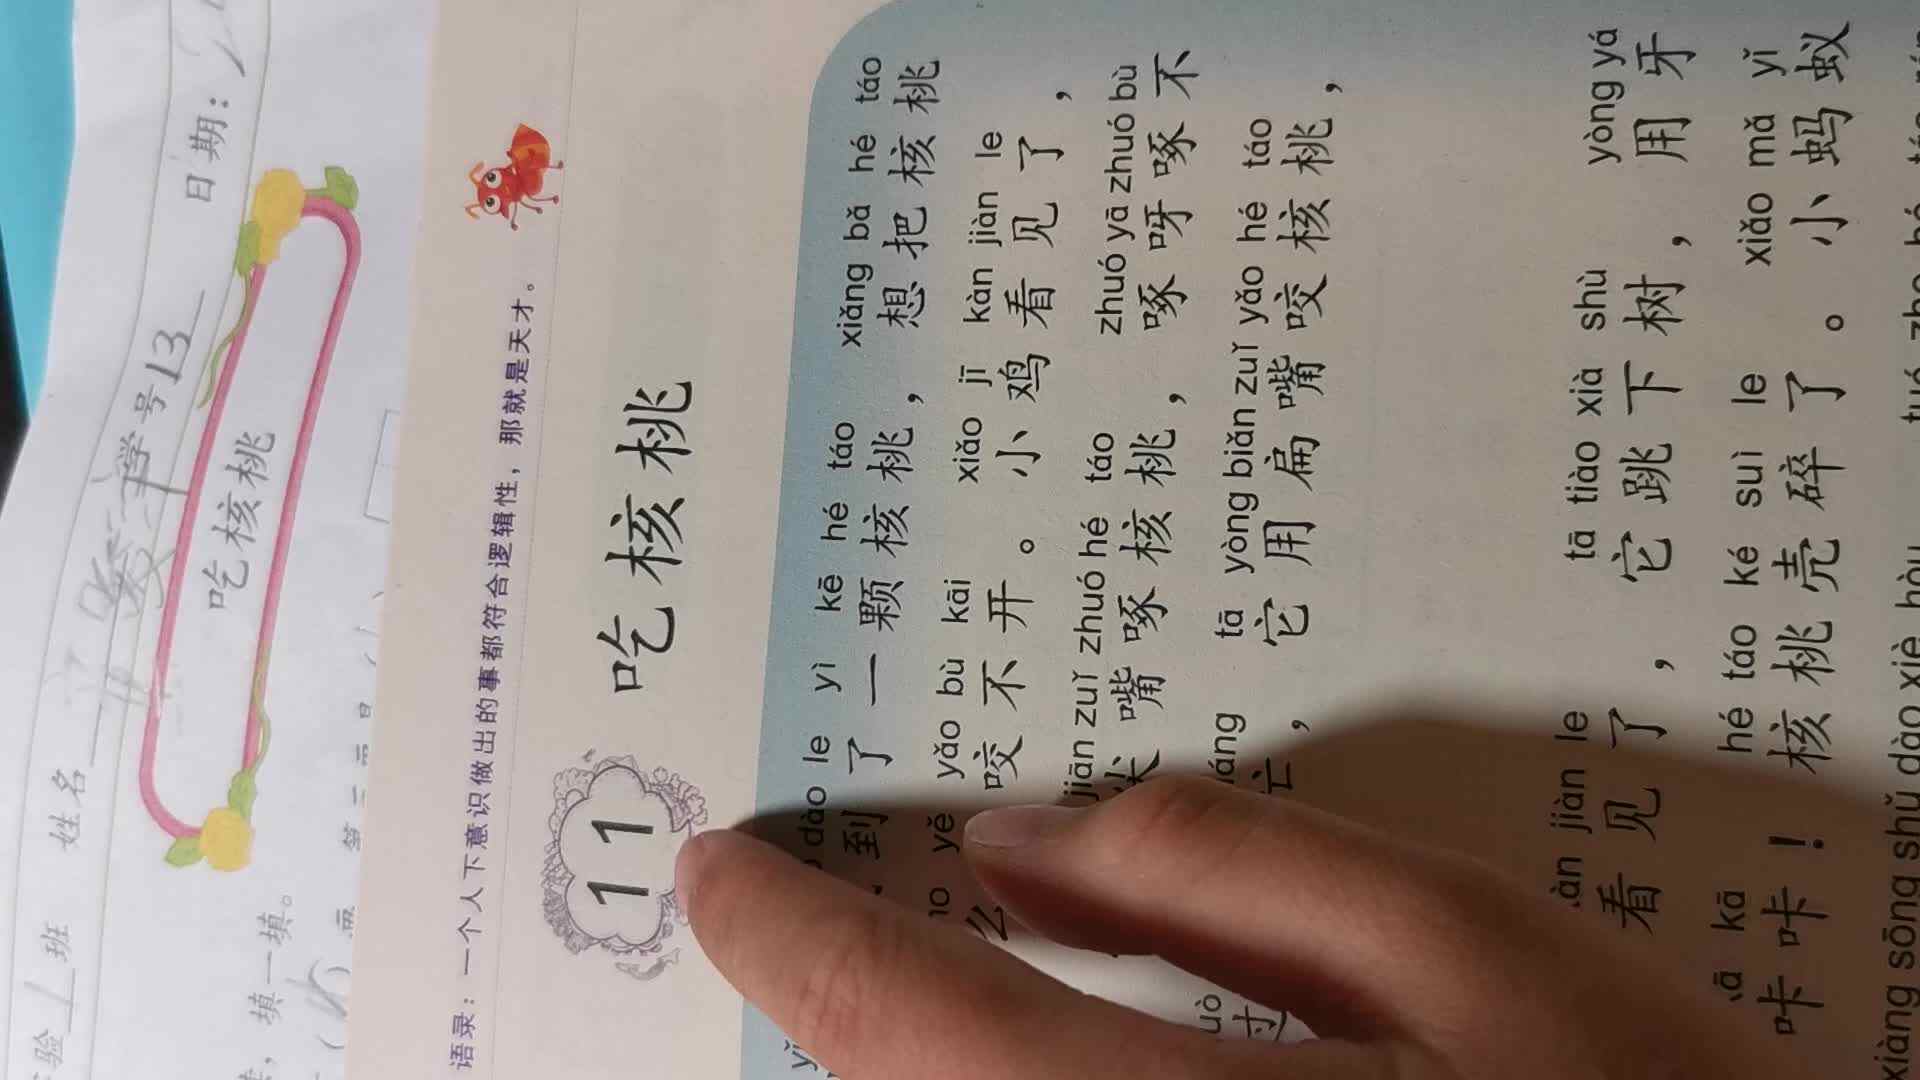 验 1 班 姓名 学号 13 日期：
吃核桃
，填一填。
语录：一个人下意识做出的事都符合逻辑性，那就是天才。
11 吃核桃
dào le yì kē hé táo xiǎng bǎ hé táo
到了一颗核桃，想把核桃
yě yǎo bù kāi xiǎo jī kàn jiàn le
么 咬不开。小鸡看见了，
jiān zuǐ zhuó hé táo zhuó yā zhuó bù
尖嘴啄核桃，啄呀啄不
tā yòng biǎn zuǐ yǎo hé táo
过 忙，它用扁嘴咬核桃，
jiàn le tā tiào xià shù yòng yá
看见了，它跳下树，用牙
kā hé táo ké suì le xiǎo mǎ yǐ
咔咔！核桃壳碎了。小蚂蚁
xiàng sōng shǔ dào xiè hòu